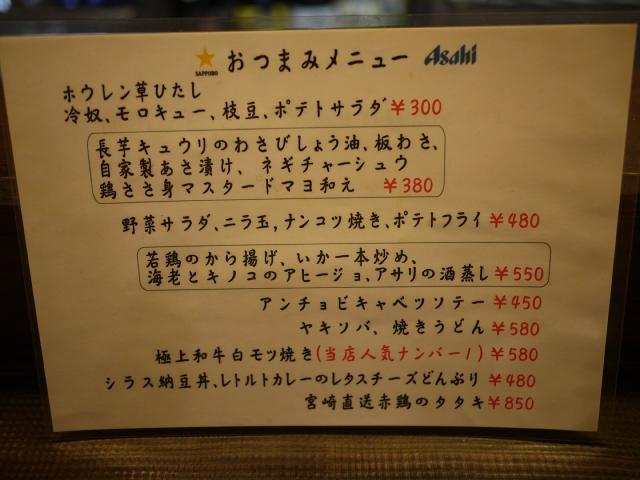 SAPPORO おつまみメニュー Asahi
ホウレン草ひたし
冷奴、モロキュー、枝豆、ポテトサラダ ¥300
長芋キュウリのわさびしょう油、板わさ、
自家製あさ漬け、ネギチャーシュウ
鶏ささ身マスタードマヨ和え ¥380
野菜サラダ、ニラ玉,ナンコツ焼き、ポテトフライ ¥480
若鶏のから揚げ、いか一本炒め、
海老とキノコのアヒージョ、アサリの酒蒸し ¥550
アンチョビキャベツソテー ¥450
ヤキソバ、焼きうどん ¥580
極上和牛白モツ焼き(当店人気ナンバー1) ¥580
シラス納豆丼、レトルトカレーのレタスチーズどんぶり ¥480
宮崎直送赤鶏のタタキ ¥850